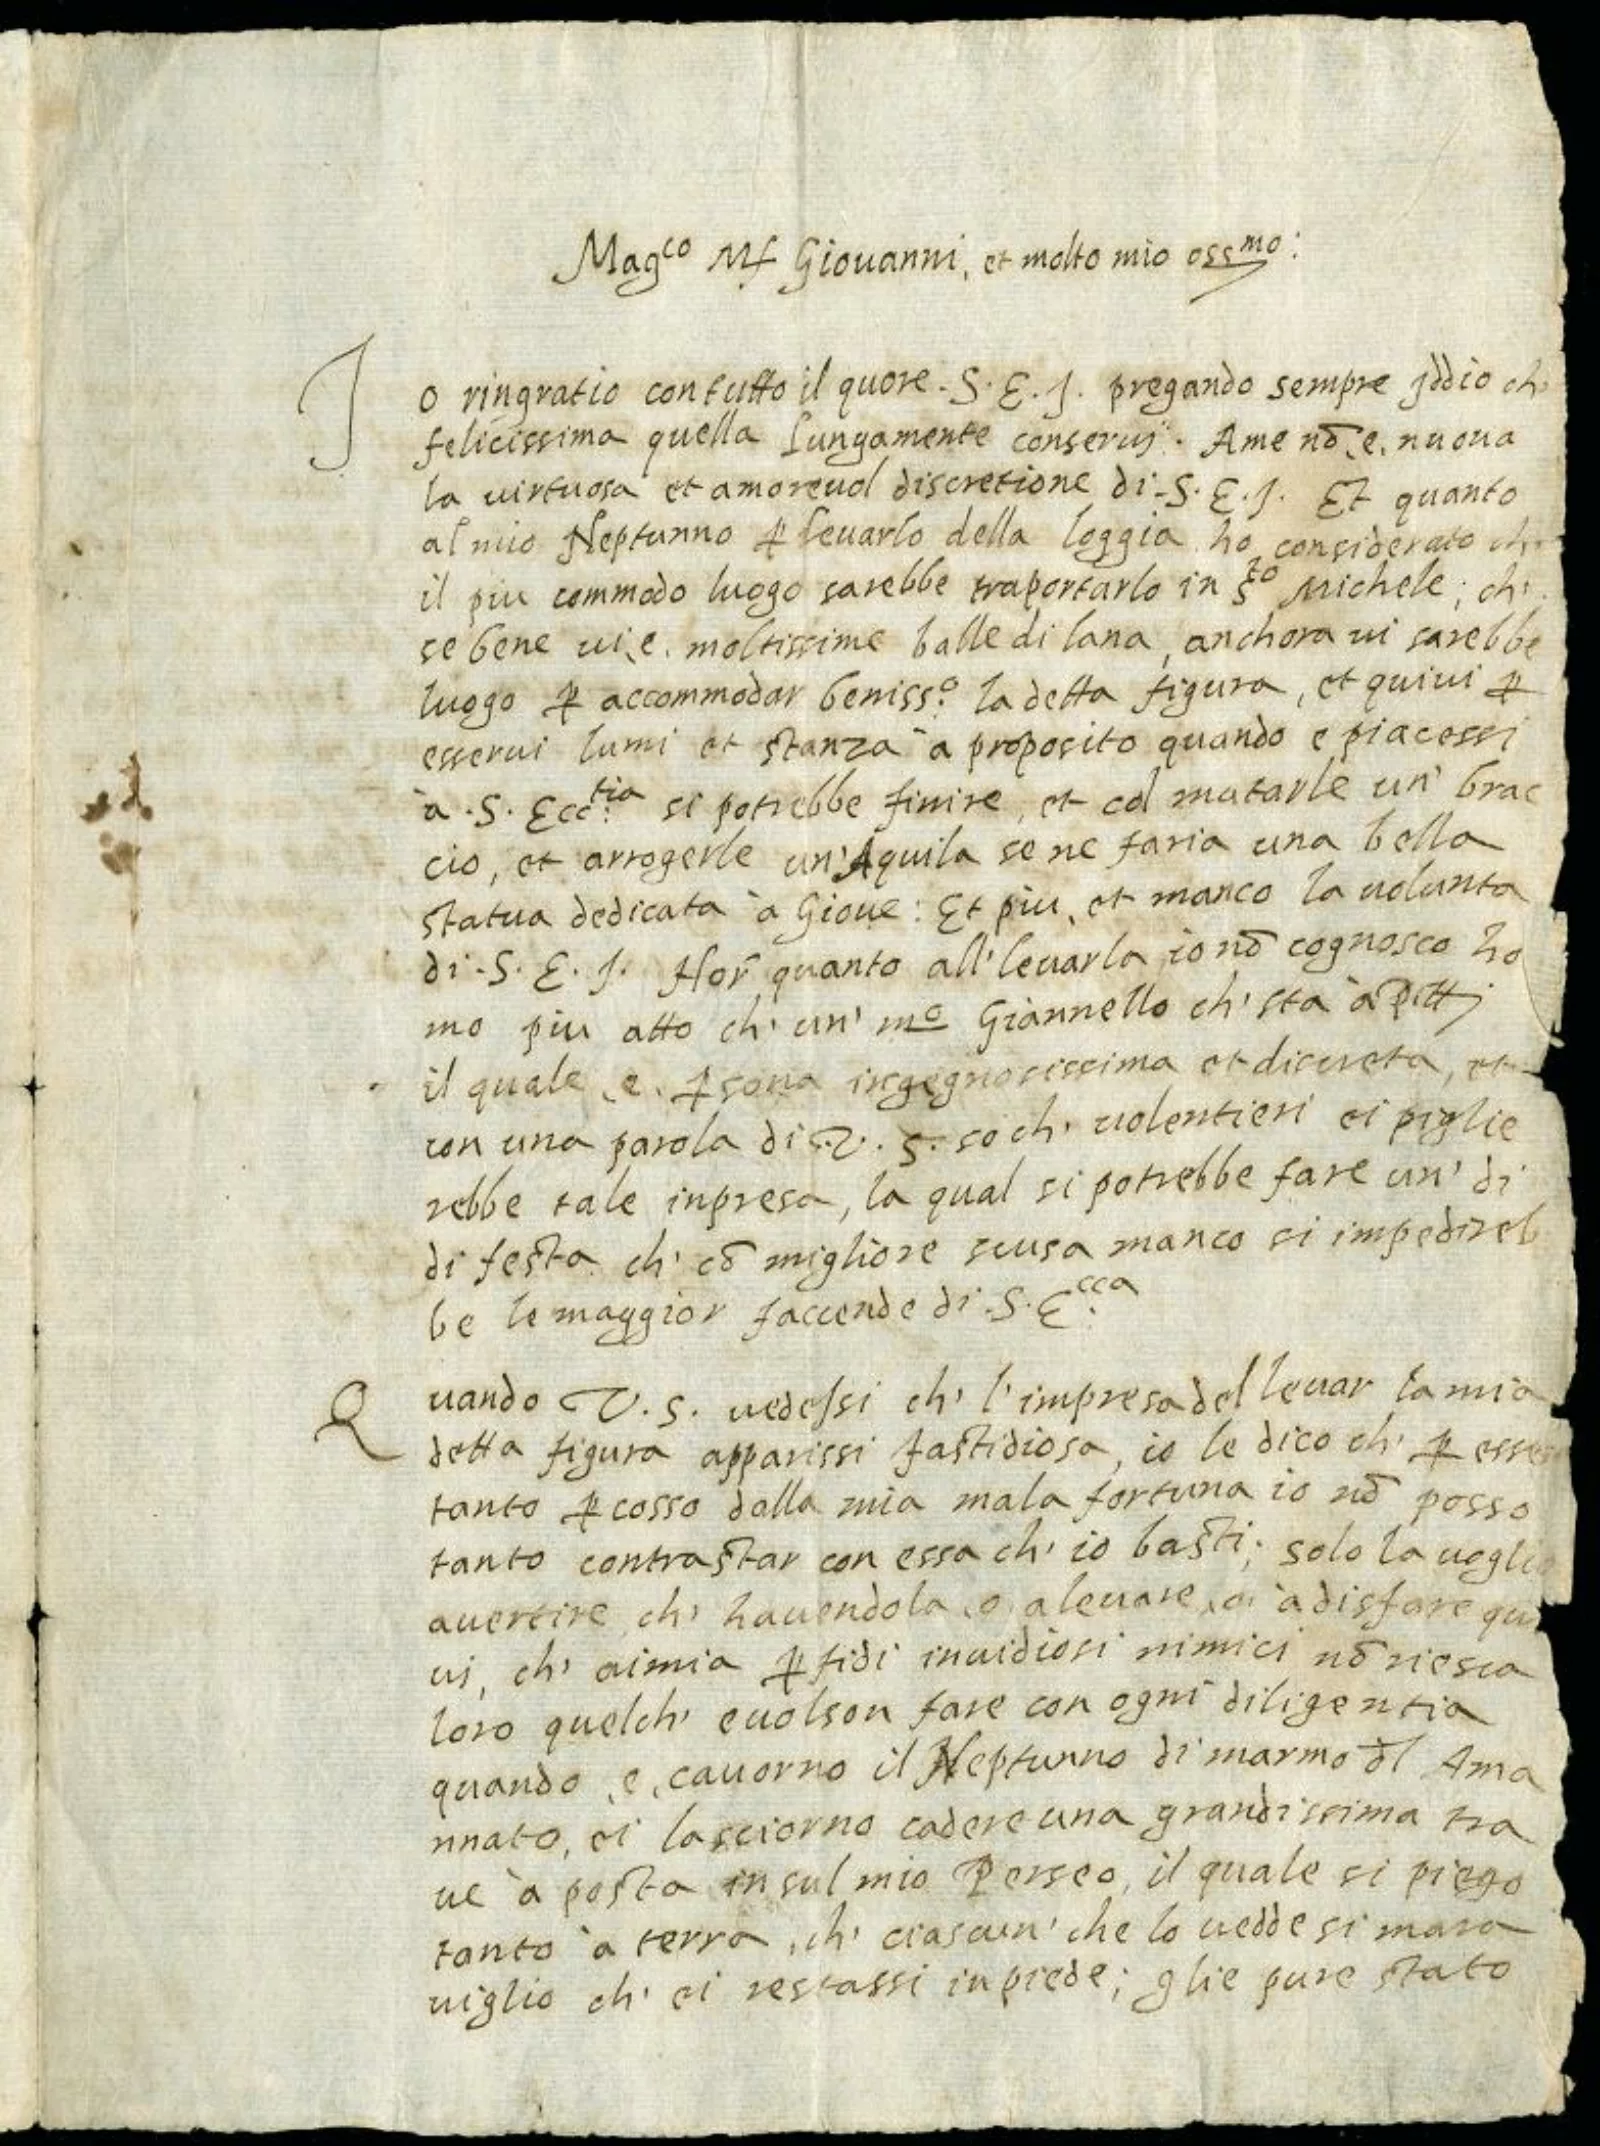 Mag^co M^r Giouanni, et molto mio oss^mo:
Io ringratio con tutto il quore .S.E.J. pregando sempre Jddio ch'
felicissima quella lungamente conserui. Ame nō, e, nuoua
la uirtuosa et amoreuol discretione di .S.E.J. Et quanto
al mio Neptunno ꝑ leuarlo della loggia ho considerato ch'
il piu commodo luogo sarebbe traportarlo in S^to Michele; ch'
se bene ui, e, moltissime balle di lana, anchora ui sarebbe
luogo ꝑ accommodar beniss^o. la detta figura, et quiui ꝑ
esserui lumi et stanza à proposito quando e piacessi
à .S. Ecc^tia: si potrebbe finire, et col mutarle un' brac
cio, et arrogerle un'Aquila se ne faria una bella
statua dedicata à Gioue: Et piu, et manco la uolunta
di .S.E.J. Hor quanto all'leuarla io nō cognosco ho
mo piu atto ch' un' m^o Giannello ch' sta à pittj
il quale, e, ꝑsona ingegnosissima et discreta, et
con una parola di .V.S. so ch' uolentieri ei piglie
rebbe tale inpresa, la qual si potrebbe fare un' di
di festa ch' cō migliore scusa manco si impedireb
be le maggior faccende di .S.E^cca:
Quando V.S. uedessi ch' l'impresa del leuar la mia
detta figura apparissi fastidiosa, io le dico ch' ꝑ esser
tanto ꝑcosso dalla mia mala fortuna io nō posso
tanto contrastar con essa ch' io basti; solo la uoglio
auertire ch' hauendola, o, a leuare, o, à disfare qui
ui, ch' ai mia ꝑfidi inuidiosi nimici nō riesca
loro quel ch' e uolson fare con ogni diligentia
quando, e, cauorno il Neptunno di marmo dl Ama
nnato, ei lasciorno cadere una grandissima tra
ue à posta in sul mio Perseo, il quale si piego
tanto à terra, ch' ciascun' che lo uedde si mara
uiglio ch' ei restassi in piede; glie pure stato